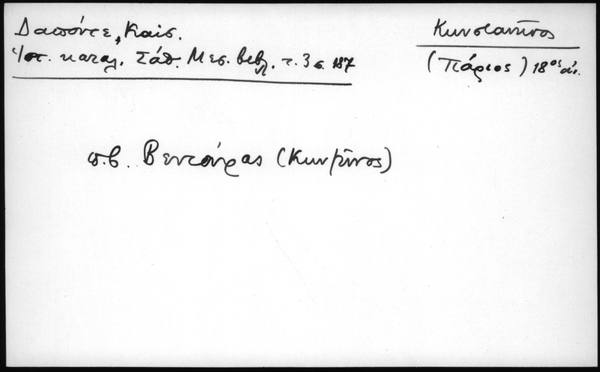 Δαπόντε, Καισ.
Ἱστ. καταλ. Σάθ. Μεσ. Βιβλ. τ. 3 σ. 187
Κωνσταντῖνος
(Πάριος) 18ος αἰ.
π.β. Βεντούρας (Κων/τῖνος)